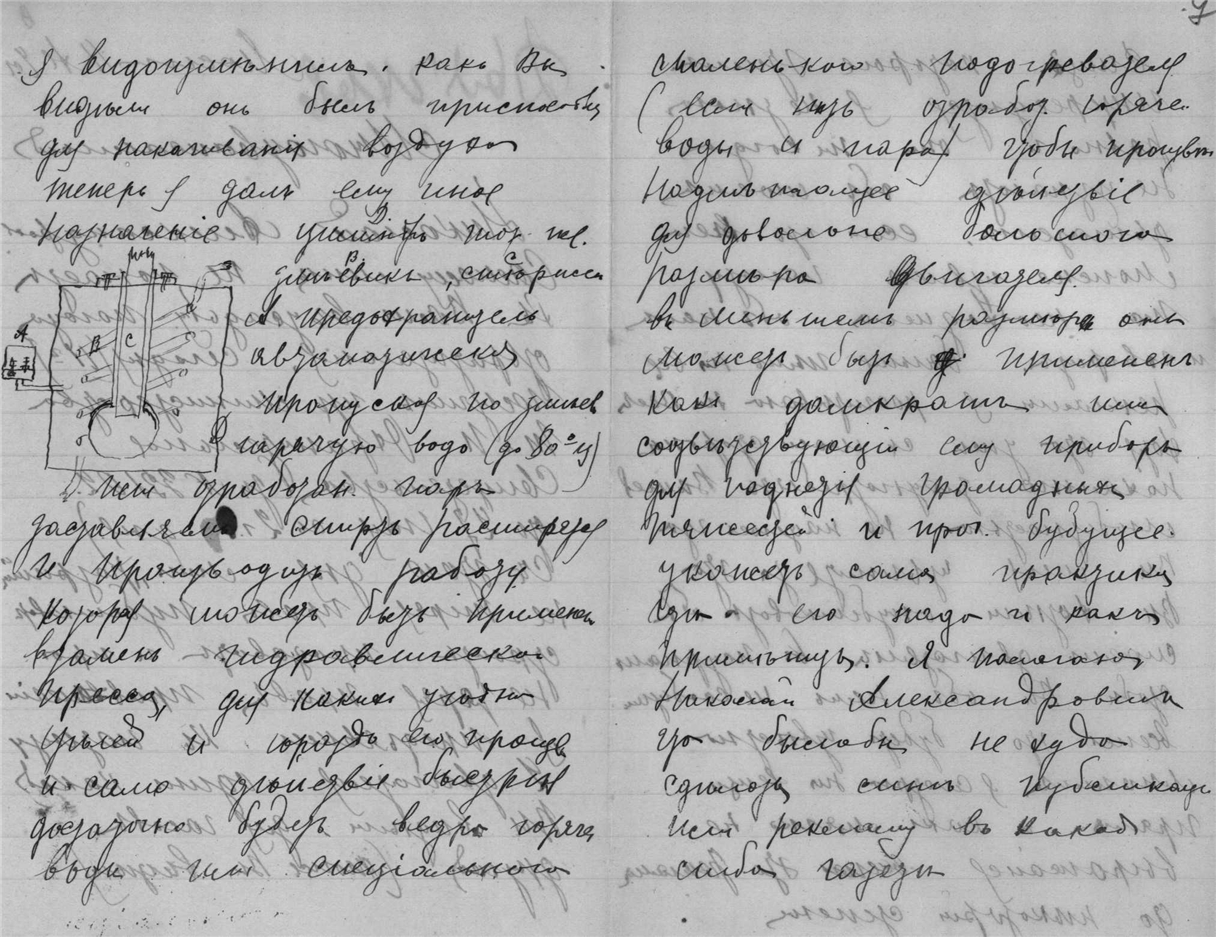 Я видоизмѣнилъ. какъ Вы
видѣли онъ былъ приспособ
для накачиванія воздуха
теперь я далъ ему иное
назначеніе цилиндръ D тотъ же.
змѣевикъ B, спиртъ C
А предохранитель
автоматическій
пропуская по змѣев
горячую воду (до 80° ц)
или отработан. паръ
заставляемъ спиртъ расширятся
и производить работу
которая можетъ быть примѣнена
взаменъ гидравлическо
пресса, для какихъ угодно
цѣлей и гораздо его проще
и само дѣйствіе быстрѣе
достаточно будетъ ведра горяче
воды или спеціального
7
маленького подогревателя
(если нѣтъ отработ. горяче
воды и пара) чтобы произвести
надлежащее дѣйствіе
для довольно большого
размѣра двигателя.
въ меньшемъ размѣре онъ
можетъ быть примененъ
какъ домкратъ или
соотвѣтствующій ему приборъ
для поднятія громадныхъ
тяжестей и проч. будущее.
укажетъ сама практика
гдѣ его надо и какъ
примѣнить. Я полагаю
Николай Александровичъ
что былобы не худо
сдѣлать публикацію
или рекламу въ какой
либо газетѣ
A
B
C
D